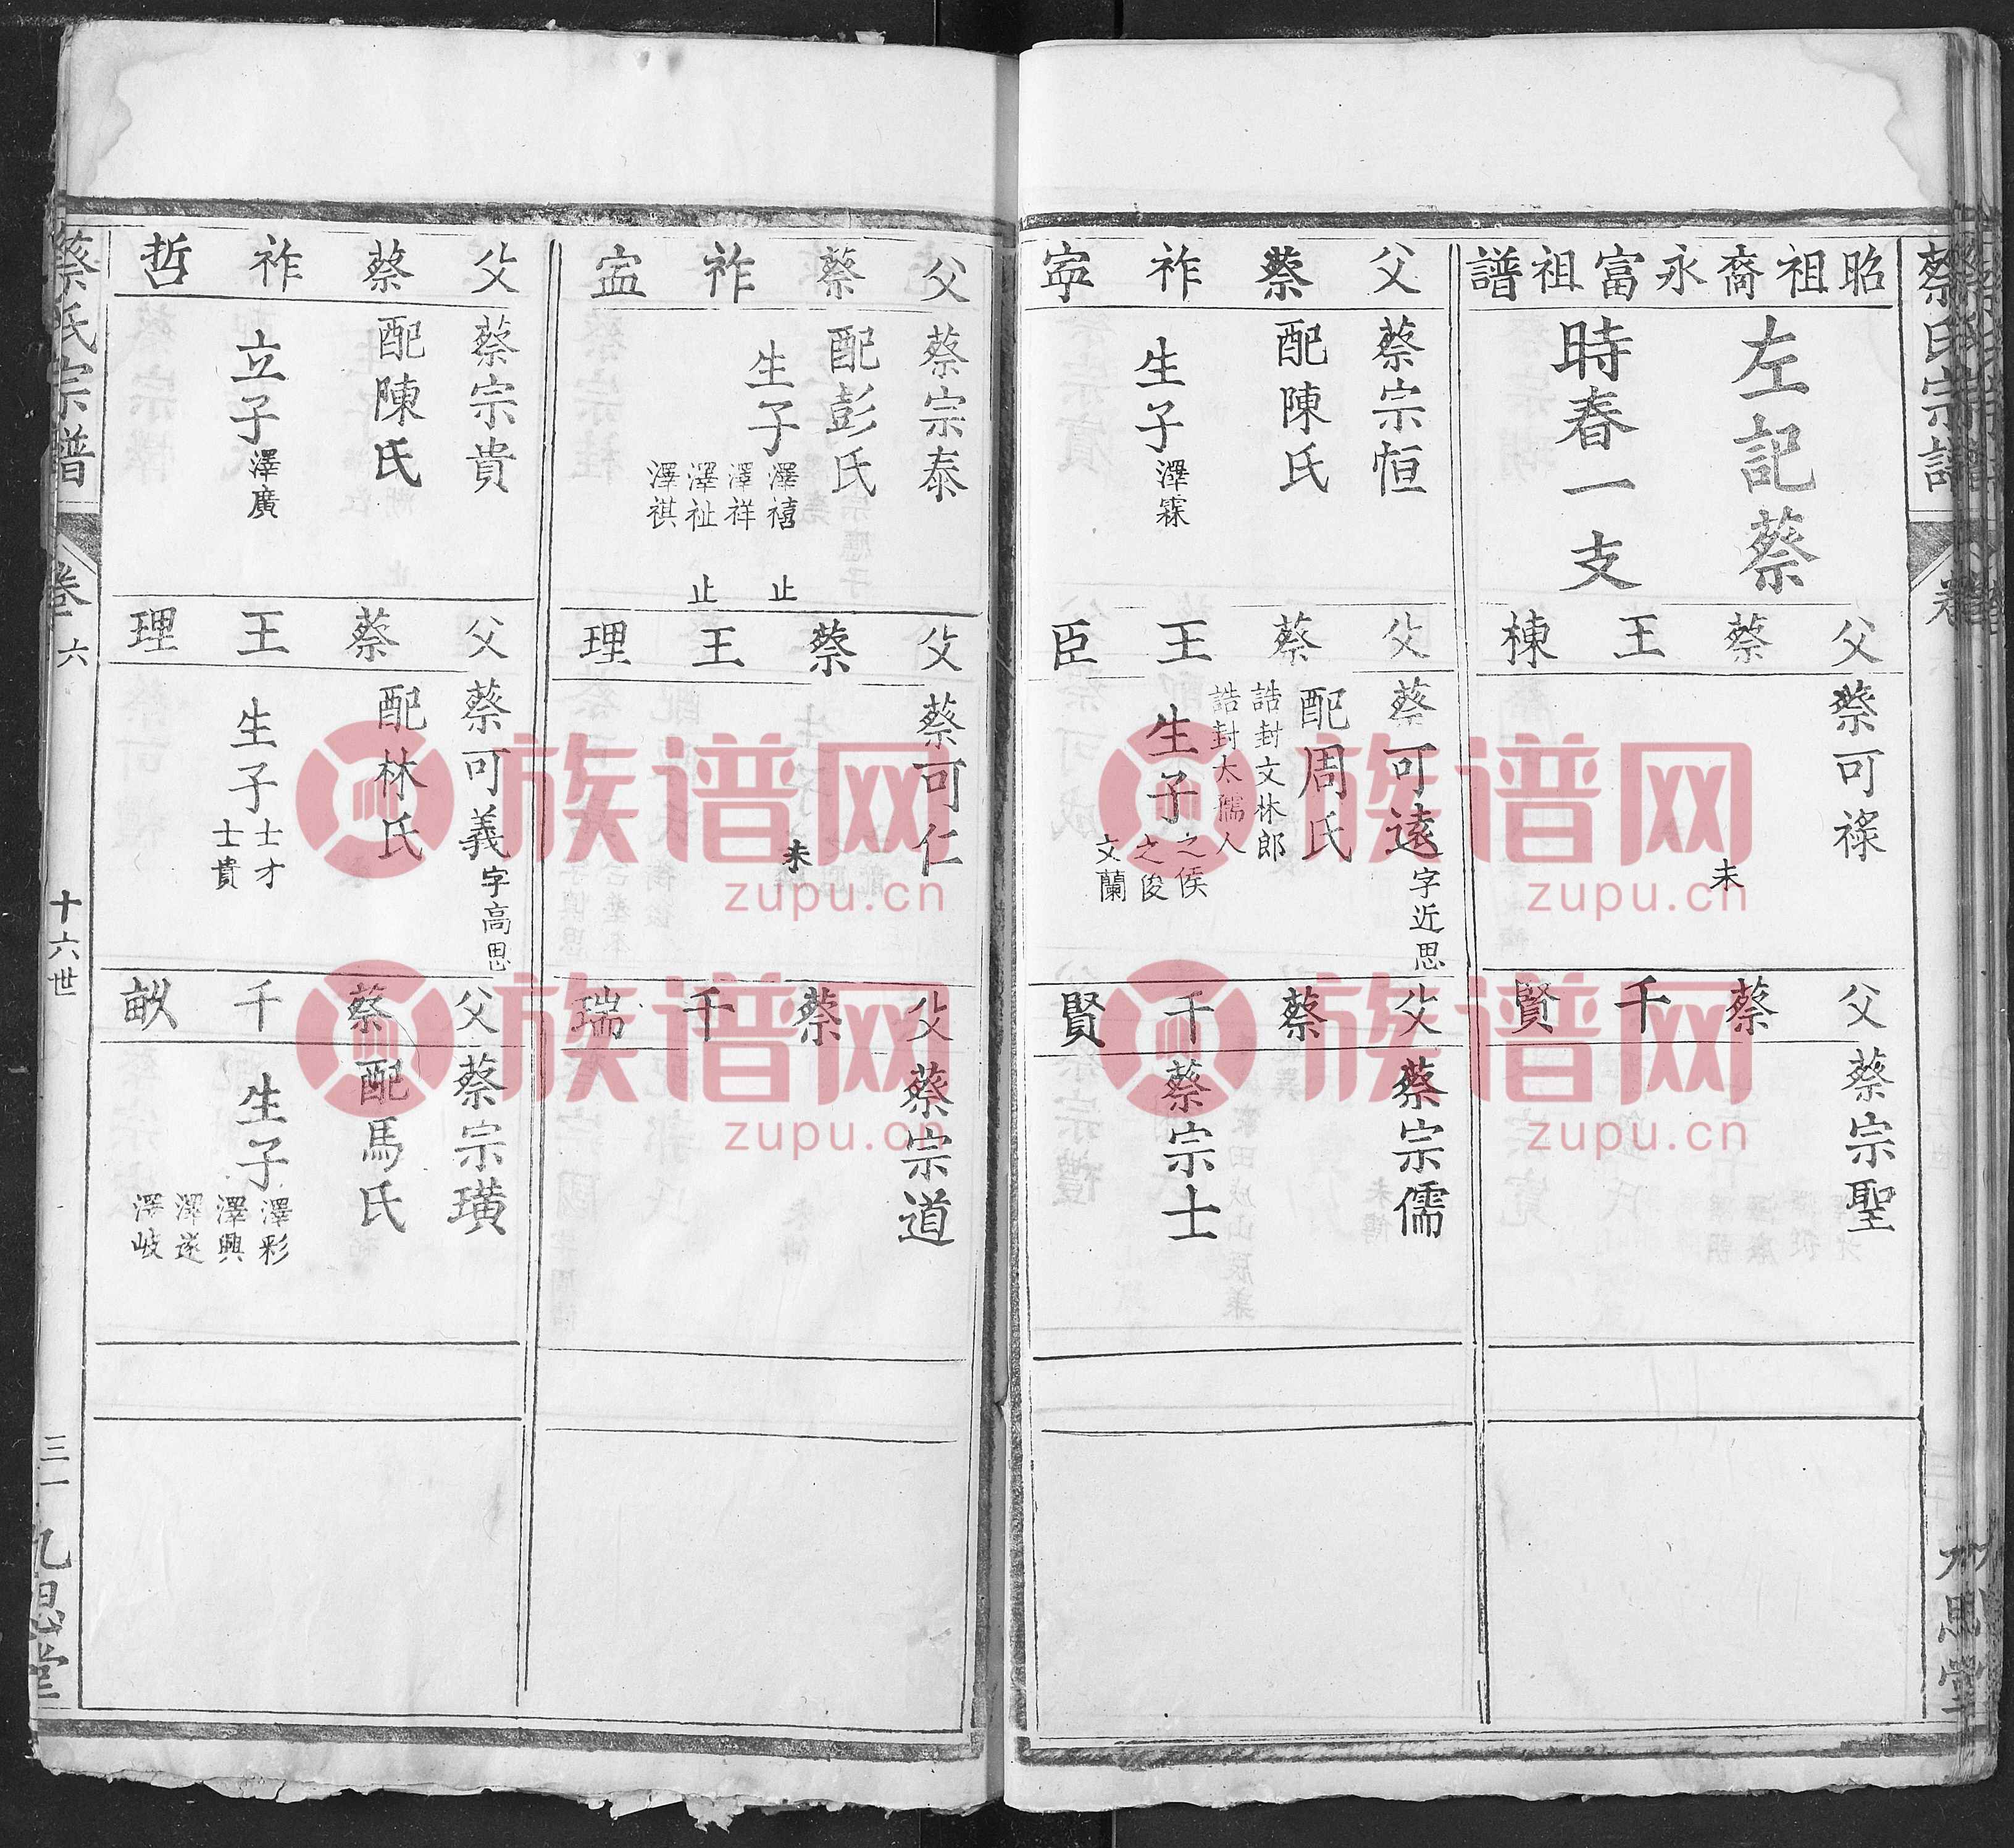 蔡氏宗譜
昭祖裔永富祖譜
左記蔡
時春一支
父蔡王棟
蔡可祿
未
父蔡千賢
蔡宗聖
父蔡祚寧
蔡宗恒
配陳氏
生子
澤霖
父蔡王臣
蔡可遠字近思
配周氏
誥封文林郎
誥封太孺人
生子
之侯
之俊
文蘭
父蔡千賢
蔡宗儒
蔡宗士
父蔡祚寍
蔡宗泰
配彭氏
生子
澤禧止
澤祥
澤祉止
澤祺
父蔡王理
蔡可仁
未
父蔡千瑞
蔡宗道
父蔡祚哲
蔡宗貴
配陳氏
立子
澤廣
父蔡王理
蔡可義字高思
配林氏
生子
士才
士貴
父蔡千畝
蔡宗璜
配馬氏
生子
澤彩
澤興
澤遂
澤岐
蔡氏宗譜
卷六
十六世
三一
九思堂
九思堂
族谱网
zupu.cn
族谱网
zupu.cn
族谱网
zupu.cn
族谱网
zupu.cn